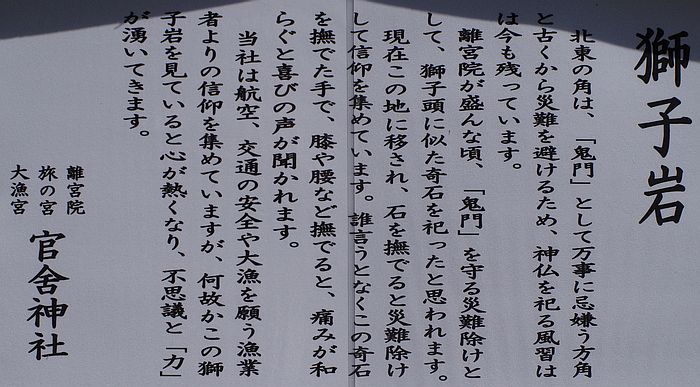 獅子岩
北東の角は、「鬼門」として万事に忌嫌う方角
と古くから災難を避けるため、神仏を祀る風習は
は今も残っています。
離宮院が盛んな頃、「鬼門」を守る災難除けと
して、獅子頭に似た奇石を祀ったと思われます。
現在この地に移され、石を撫でると災難除け
して信仰を集めています。誰言うとなくこの奇石
を撫でた手で、膝や腰など撫でると、痛みが和
らぐと喜びの声が聞かれます。
当社は航空、交通の安全や大漁を願う漁業
者よりの信仰を集めていますが、何故かこの獅
子岩を見ていると心が熱くなり、不思議と「力」
が湧いてきます。
離宮院
旅の宮
大漁宮
官舍神社